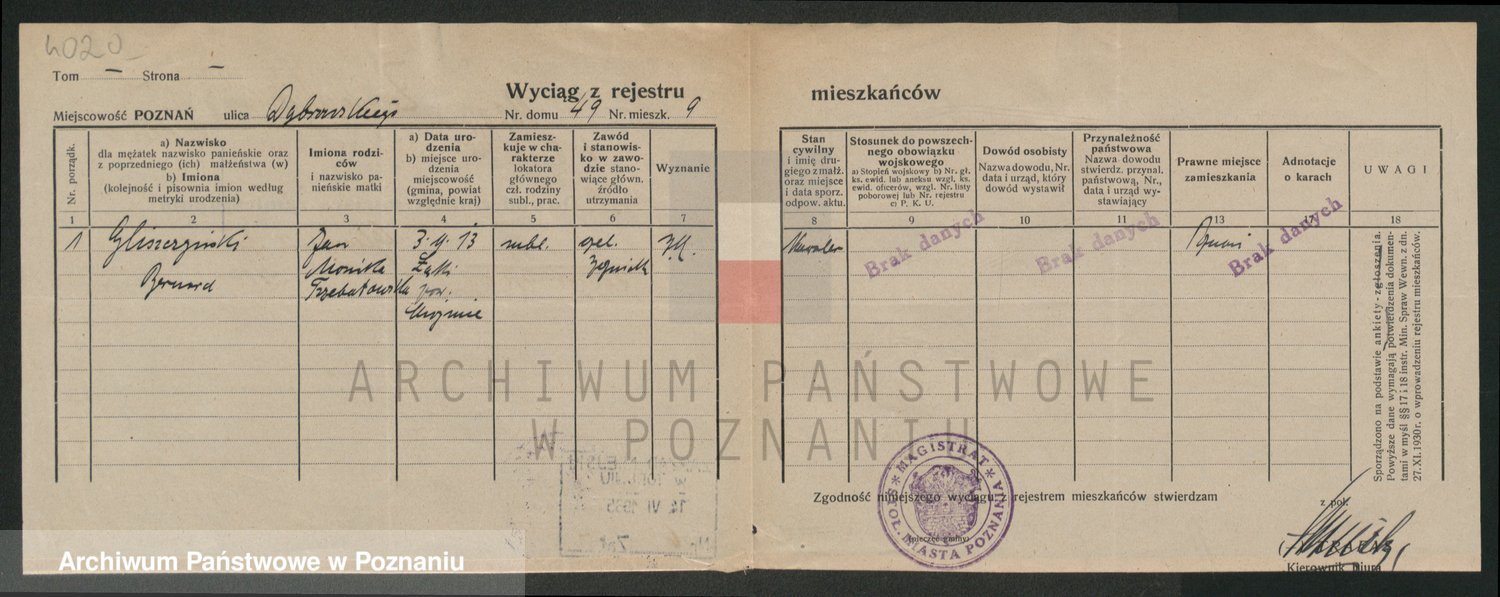 4020
Tom – Strona –
Wyciąg z rejestru mieszkańców
Miejscowość POZNAŃ ulica Dąbrowskiego Nr. domu 49 Nr. mieszk. 9
Nr. porządk.
a) Nazwisko
dla mężatek nazwisko panieńskie oraz
z poprzedniego (ich) małżeństwa (w)
b) Imiona
(kolejność i pisownia imion według
metryki urodzenia)
Imiona rodzi-
ców
i nazwisko pa-
nieńskie matki
a) Data uro-
dzenia
b) miejsce uro-
dzenia
miejscowość
(gmina, powiat
względnie kraj)
Zamiesz-
kuje w cha-
rakterze
lokatora
głównego
czł. rodziny
subl., prac.
Zawód
i stanowis-
ko w zawo-
dzie stano-
wiące główn.
źródło
utrzymania
Wyznanie
Stan
cywilny
i imię dru-
giego z małż.
oraz miejsce
i data sporz.
odpow. aktu.
Stosunek do powszech-
nego obowiązku
wojskowego
a) Stopień wojskowy b) Nr. gł.
ks. ewid. lub aneksu wzgl. ks.
ewid. oficerów, wzgl. Nr. listy
poborowej lub Nr. rejestru
c) P. K. U.
Dowód osobisty
Nazwa dowodu, Nr.
data i urząd, który
dowód wystawił
Przynależność
państwowa
Nazwa dowodu
stwierdz. przynal.
państwowa, Nr.,
data i urząd wy-
stawiający
Prawne miejsce
zamieszkania
Adnotacje
o karach
UWAGI
1 2 3 4 5 6 7 8 9 10 11 13 17 18
1 Gliszczyński Jan 3. 4. 13 subl.
Bernard Monika Żąki
Trzebiatowska pow.
Kawaler
Brak danych
Brak danych
Brak danych
Sporządzono na podstawie ankiety - zgłoszenia.
Powyższe dane wymagają potwierdzenia dokumen-
tami w myśl §§ 17 i 18 instr. Min. Spraw Wewn. z dn.
27. XI. 1930 r. o wprowadzeniu rejestru mieszkańców.
ARCHIWUM PAŃSTWOWE
W POZNANIU
Zgodność niniejszego wyciągu z rejestrem mieszkańców stwierdzam
MAGISTRAT
STOŁ. MIASTA POZNANIA
(pieczęć gminy)
z pol.
Kierownik Biura
14. VI 1935
Archiwum Państwowe w Poznaniu